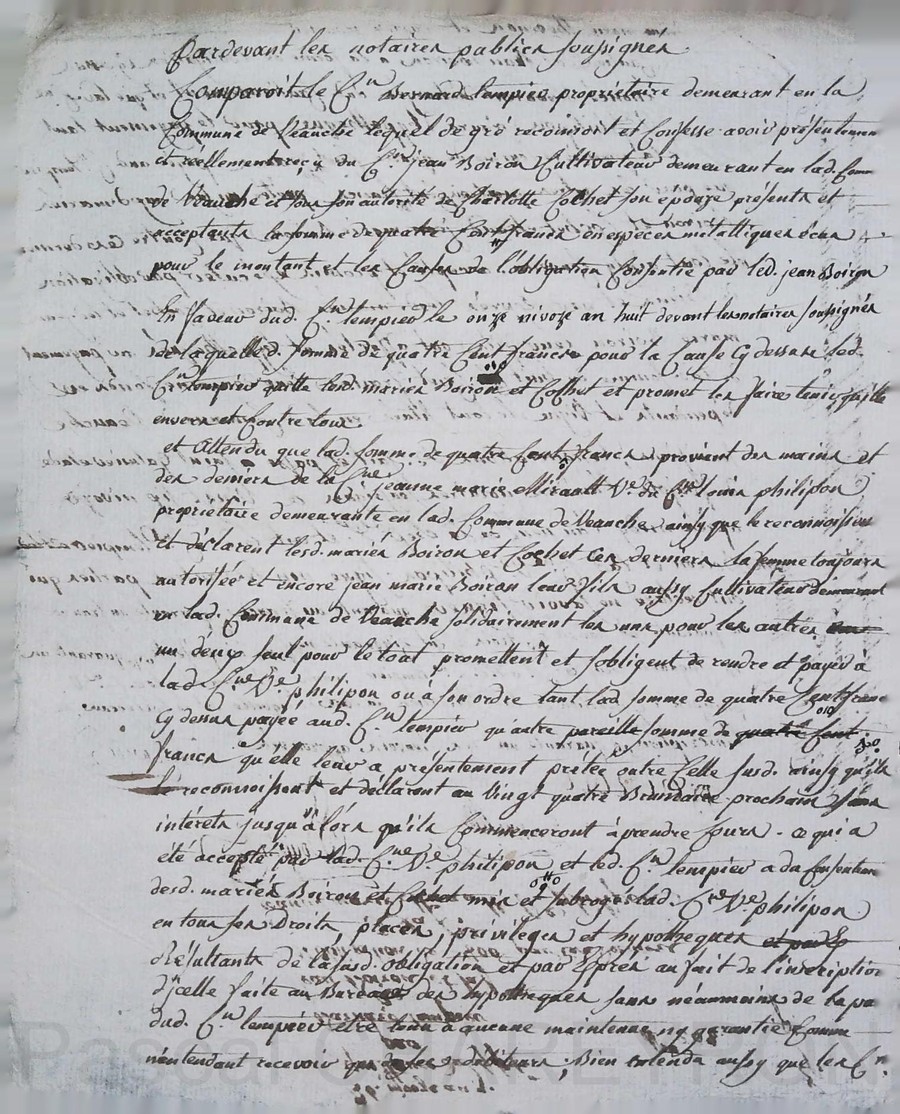 Pardevant les notaires publics soussignés
Comparoit le Cen Bernard Lempieu propriétaire demeurant en la
Commune de Veauche lequel de gré reconnoit et Confesse avoir présentement
et reellement reçu du Cen jean Boiron Cultivateur demeurant en lad. Comm
de Veauche et sous son autorité de Charlotte Cochet son epouse présents et
acceptants la somme de quatre Cent francs en especes métalliques
pour le montant et les Causes de l'obligation Consentie par led. jean Boiron
En faveur dud. Cen Lempieu le onze nivoze an huit devant les notaires soussignés
de laquelle d. somme de quatre Cent francs pour la Cause Cy dessus led.
Cen Lempieu quitte lesd. mariés Boiron et Cochet et promet les faires tenir quitte
envers et Contre tous
et Attendu que lad. somme de quatre Cent francs provient des mains et
des deniers de la Cne jeanne marie Mirault Ve. de Cen Louis philipon
propriétaire demeurante en lad. Commune de Veauche ainsy que le reconnoissent
Et déclarent lesd. mariés Boiron et Cochet Ces derniers la femme toujours
autorisée et encore jean marie Boiron leur fils aussy Cultivateur demeurant
en lad. Commune de Veauche solidairement les uns pour les autres
un d'eux seul pour le tout promettent et sobligent de rendre et payer à
lad. Cne Ve philipon ou à son ordre tant lad somme de quatre Cent francs
Cy dessus payée aud. Cen Lempieu qu'autre pareille somme de quatre Cent
francs qu'elle leur a présentement prêtée outre Celle susd. ainsy qu'ils
le reconnoissent et déclarent au Vingt quatre Brumaire prochain sans
intérets jusqu'alors qu'ils Commenceront à prendre Cours. ce qui a
été accepté par lad. Cne Ve philipon et led. Cen Lempieu a du Consentem
desd. mariés Boiron et Cochet mis et subrogé lad. Cne Ve philipon
en tous ses Droits, places, privileges et hypotheques
Résultants de lasusd. obligation et par Exprès au fait de l'inscription
d'jcelle faite au Bureau des hypotheques sans néanmoins de la pa
dud. Cen Lempieu etre tenu à aucune maintenue ny garantie Comm
n'entendant recevoir que de ses debiteurs, Bien entendu aussy que les Cn.